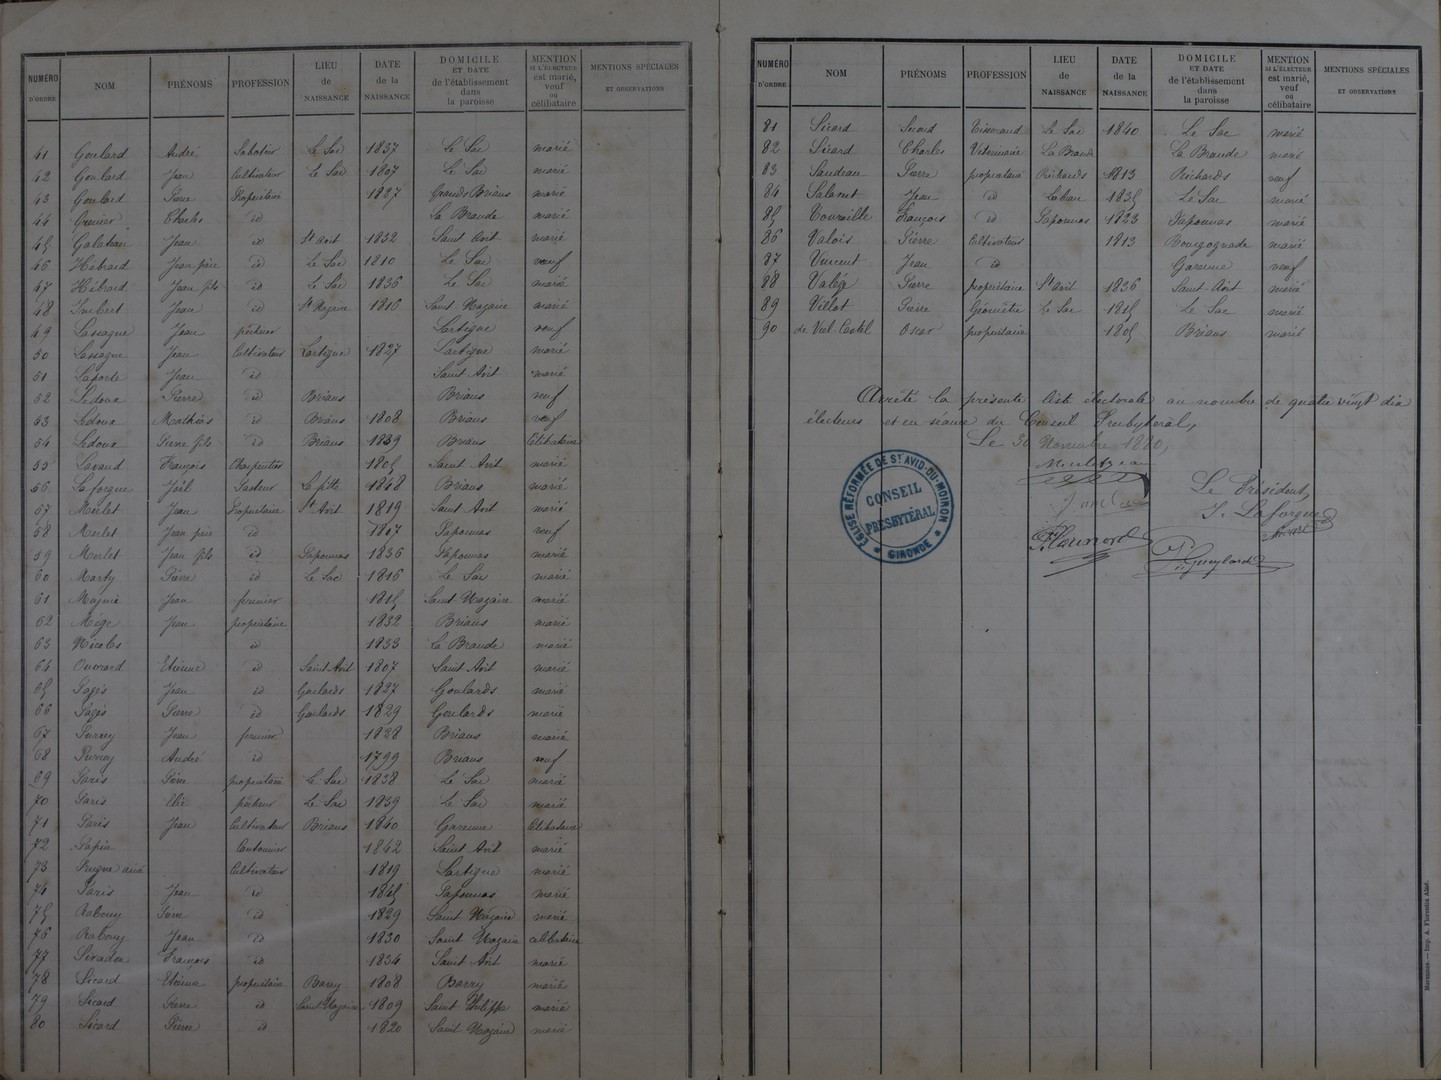 NUMÉRO D'ORDRE NOM PRÉNOMS PROFESSION LIEU de NAISSANCE DATE de la NAISSANCE DOMICILE ET DATE de l'établissement dans la paroisse MENTION SI L'ÉLECTEUR est marié, veuf ou célibataire MENTIONS SPÉCIALES ET OBSERVATIONS
41 Goulard André Sabotier Le Sac 1837 Le Sac marié
42 Goulard Jean Cultivateur Le Sac 1807 Le Sac marié
43 Goulard Pierre Propriétaire 1827 Grands Brians marié
44 Grenier Charles id La Braude marié
45 Jean id St Avit 1832 Saint Avit marié
46 Hébrard Jean père id Le Sac 1810 Le Sac veuf
47 Hébrard Jean fils id Le Sac 1836 Le Sac marié
48 Imbert Jean id St Nazaire 1816 Saint Nazaire marié
49 Lassagne Jean pêcheur Lartigue veuf
50 Lassagne Jean Cultivateur Lartigue 1827 Lartigue marié
51 Laporte Jean id Saint Avit marié
52 Ledoux Pierre id Brians Brians veuf
53 Ledoux Mathieu id Brians 1808 Brians veuf
54 Ledoux Pierre fils id Brians 1839 Brians Célibataire
55 Lavaud François Charpentier 1805 Saint Avit marié
56 Laforgue Pasteur 1848 Brians marié
57 Merlet Jean Propriétaire St Avit 1819 Saint Avit marié
58 Merlet Jean père id 1807 Papounas veuf
59 Merlet Jean fils id Papounas 1836 Papounas marié
60 Marty Pierre id Le Sac 1816 Le Sac marié
61 Jean fermier 1815 Saint Nazaire marié
62 Mège Jean propriétaire 1832 Brians marié
63 Nicolas id 1833 La Braude marié
64 Ouvrard Etienne id Saint Avit 1807 Saint Avit marié
65 Pagès Jean id Goulards 1827 Goulards marié
66 Pagès Pierre id Goulards 1829 Goulards marié
67 Jean fermier 1828 Brians marié
68 André id 1799 Brians veuf
69 Paris Pierre propriétaire Le Sac 1838 Le Sac marié
70 Paris Elie pêcheur Le Sac 1839 Le Sac marié
71 Paris Jean Cultivateur Brians 1840 Garenne Célibataire
72 Papin Cantonnier 1842 Saint Avit marié
73 ainé Cultivateur 1819 Lartigue marié
74 Paris Jean id 1845 Papounas marié
75 Rabouy Pierre id 1829 Saint Nazaire marié
76 Rabouy Jean id 1830 Saint Nazaire célibataire
77 François id 1834 Saint Avit marié
78 Sicard Etienne propriétaire Barry 1808 Barry marié
79 Sicard Pierre id Saint Nazaire 1809 Saint Philippe marié
80 Sicard Pierre id 1820 Saint Nazaire marié
NUMÉRO D'ORDRE NOM PRÉNOMS PROFESSION LIEU de NAISSANCE DATE de la NAISSANCE DOMICILE ET DATE de l'établissement dans la paroisse MENTION SI L'ÉLECTEUR est marié, veuf ou célibataire MENTIONS SPÉCIALES ET OBSERVATIONS
81 Sicard Tisserand Le Sac 1840 Le Sac marié
82 Sicard Charles Vétérinaire La Braude La Braude marié
83 Pierre propriétaire Richards 1813 Richards veuf
84 Jean id 1835 Le Sac marié
85 François id Papounas 1823 Papounas marié
86 Valois Pierre Cultivateur 1813 marié
87 Vincent Jean id Garenne veuf
88 Pierre propriétaire St Avit 1836 Saint Avit marié
89 Villot Pierre Géomètre Le Sac 1815 Le Sac marié
90 de Viel Castel Oscar propriétaire 1805 Brians marié
Arrêté la présente liste électorale au nombre de quatre vingt dix
électeurs et en séance du Conseil Presbytéral,
Le 30 Novembre 1880,
Le Président,
J. Laforgue
ÉGLISE RÉFORMÉE DE ST AVID-DU-MOIRON
CONSEIL PRESBYTÉRAL
GIRONDE
Marennes. — Imp. A. Florentin Aîné.